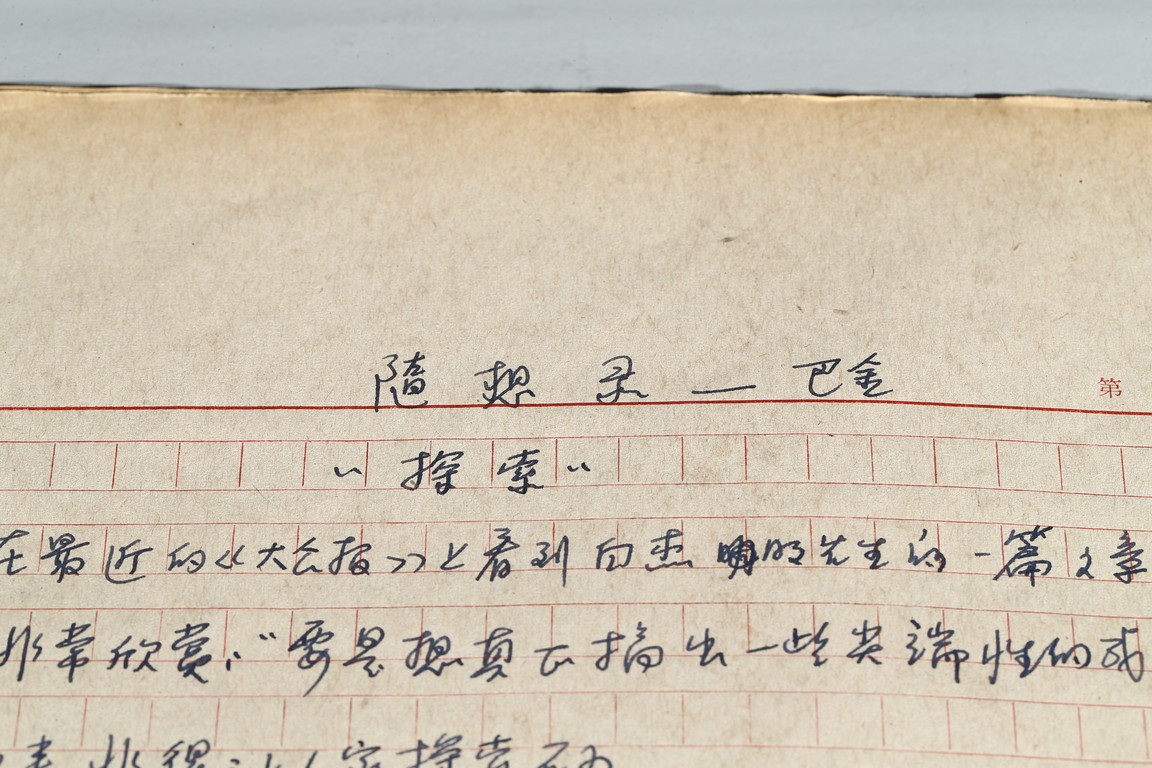 随想录——巴金
第
“探索”
在最近的《大公报》上看到白杰明先生的一篇文章
非常欣赏,“要是想真正搞出一些尖端性的成